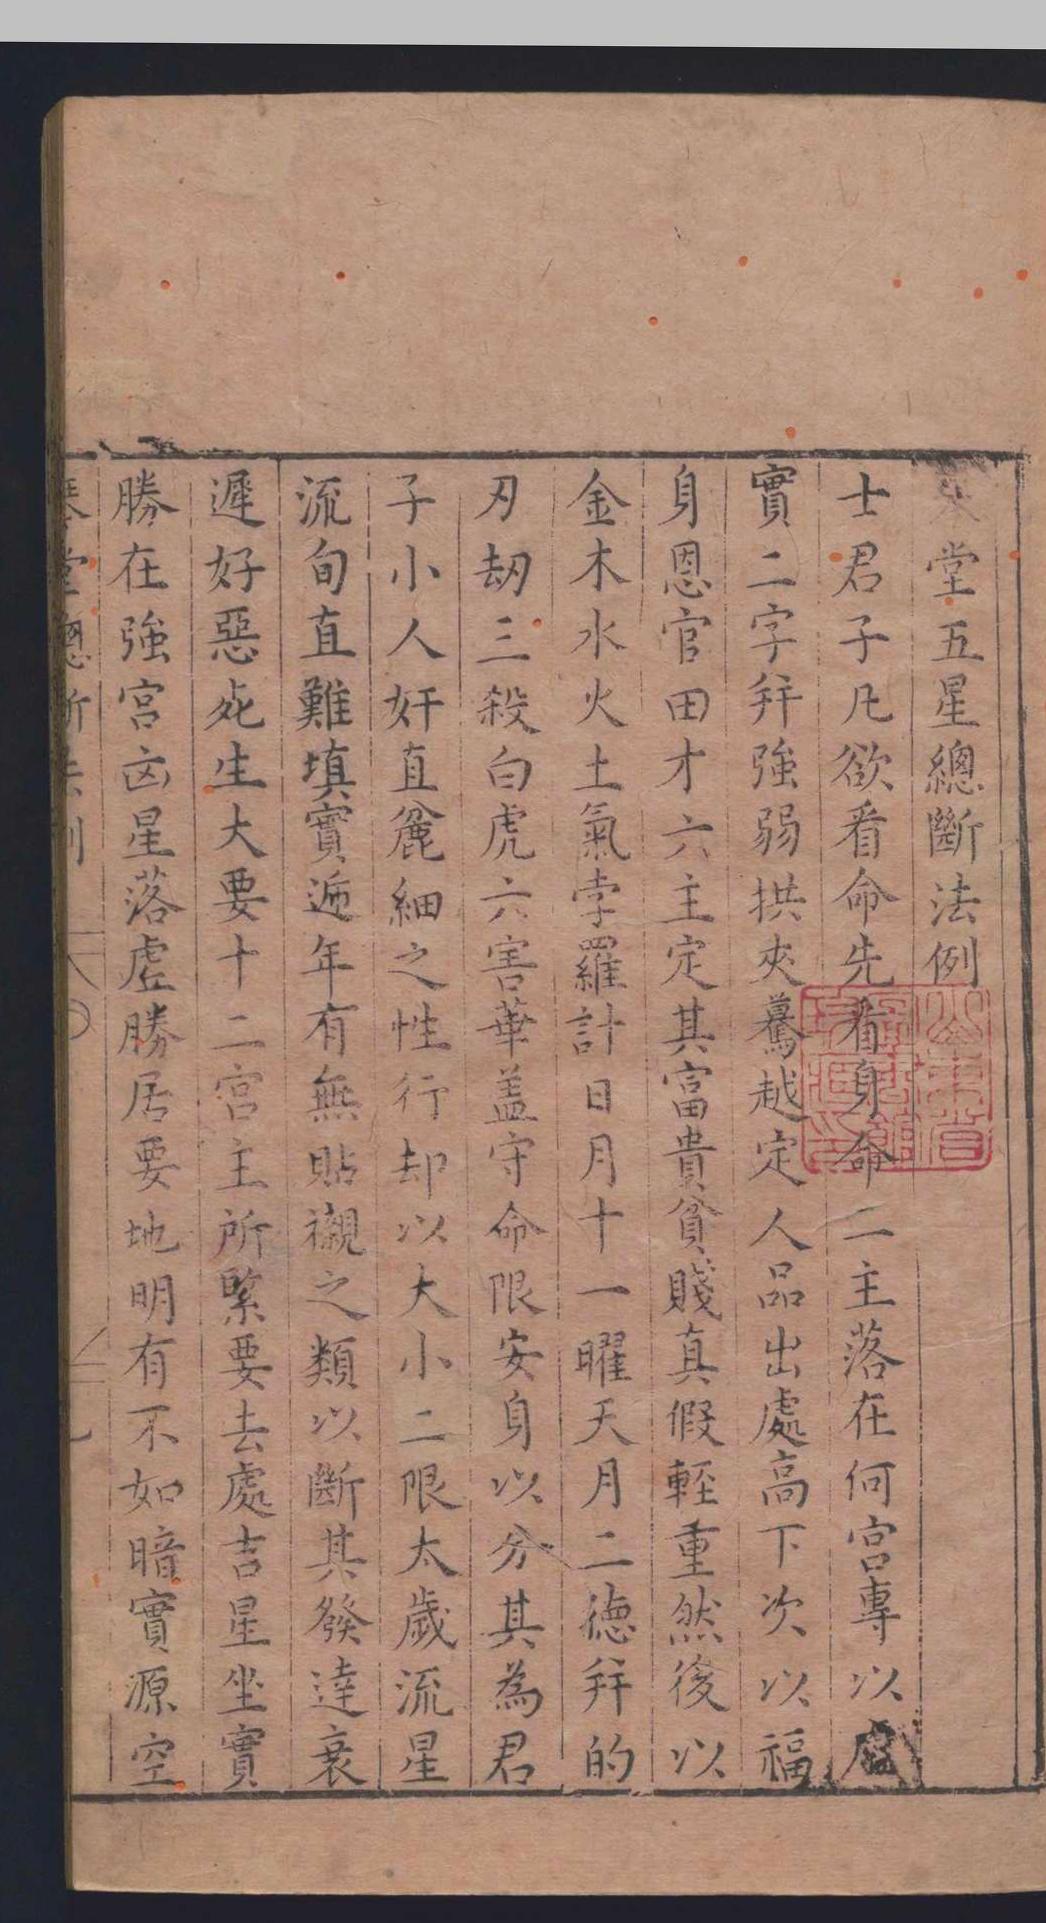 堂五星總斷法例
士君子凡欲看命先看身命二主落在何宮專以虛
實二字并強弱拱夾驀越定人品出處高下次以福
身恩官田才六主定其富貴貧賤真假輕重然後以
金木水火土氣孛羅計日月十一曜天月二德并的
刃刼三殺白虎六害華盖守命限安身以分其為君
子小人奸直麄細之性行却以大小二限太歲流星
流旬直難填實遁年有無貼襯之類以斷其發達衰
遲好惡死生大要十二宮主所緊要去處吉星坐實
勝在強宮凶星落虛勝居要地明有不如暗實源空
堂總斷法例